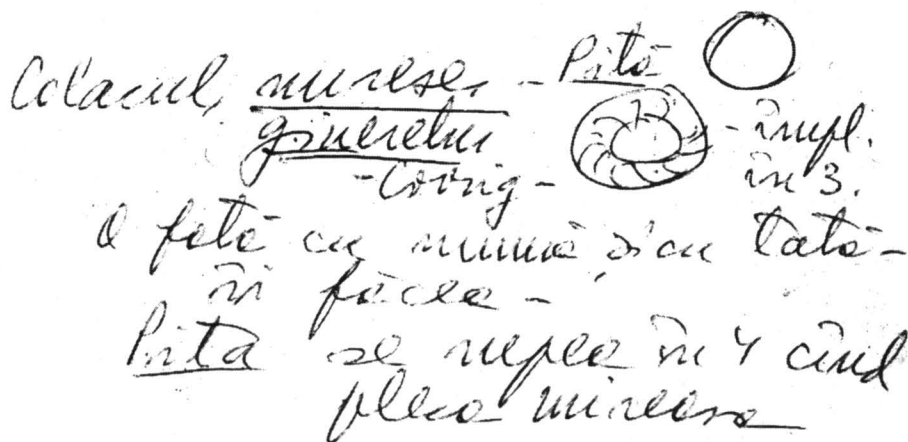 Colacul, miresei - Pită
ginerelui - împl.
- covrig - în 3.
O fată cu mumă și cu tată -
îi făcea -
Pita se rupea în 4 cînd
pleca mireasa